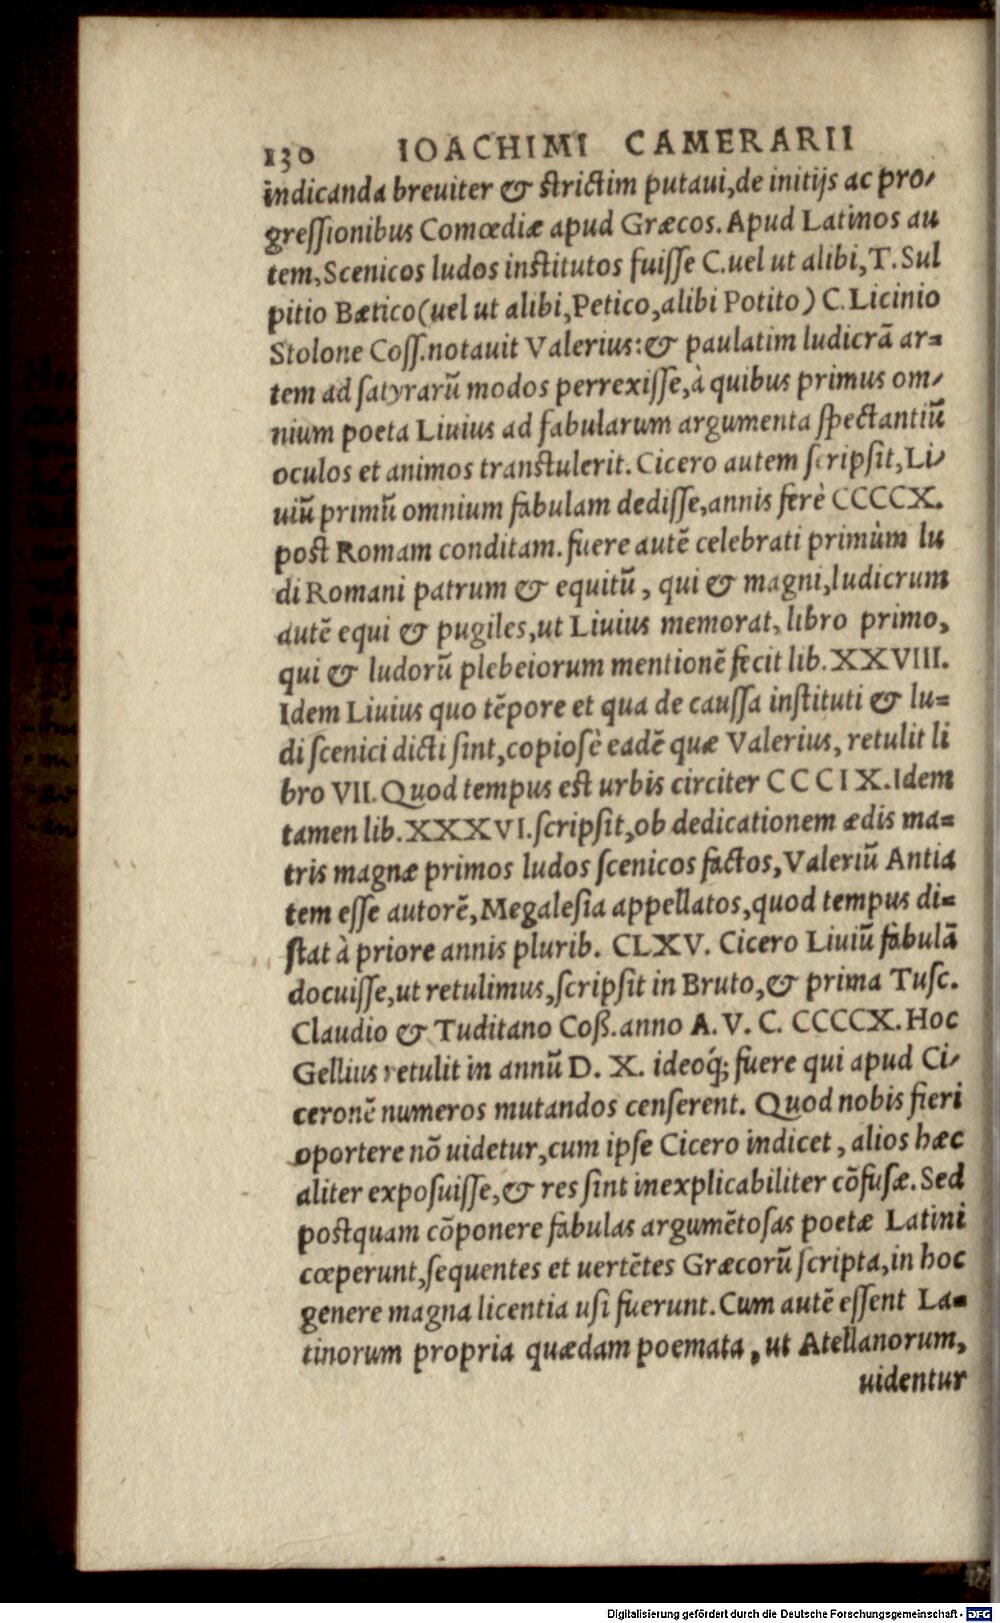 130 IOACHIMI CAMERARII
indicanda breuiter & strictim putaui, de initijs ac pro-
gressionibus Comœdiæ apud Græcos. Apud Latinos au
tem, Scenicos ludos institutos fuisse C. uel ut alibi, T. Sul
pitio Bætico (uel ut alibi, Petico, alibi Potito) C. Licinio
Stolone Coss. notauit Valerius: & paulatim ludicrā ar=
tem ad satyrarū modos perrexisse, à quibus primus om-
nium poeta Liuius ad fabularum argumenta spectantiū
oculos et animos transtulerit. Cicero autem scripsit, Li-
uiū primū omnium fabulam dedisse, annis ferè CCCCX.
post Romam conditam. fuere autē celebrati primùm lu
di Romani patrum & equitū, qui & magni, ludicrum
autē equi & pugiles, ut Liuius memorat, libro primo,
qui & ludorū plebeiorum mentionē fecit lib. XXVIII.
Idem Liuius quo tēpore et qua de caussa instituti & lu=
di scenici dicti sint, copiosè eadē quæ Valerius, retulit li
bro VII. Quod tempus est urbis circiter CCCIX. Idem
tamen lib. XXXVI. scripsit, ob dedicationem ædis ma=
tris magnæ primos ludos scenicos factos, Valeriū Antia
tem esse autorē, Megalesia appellatos, quod tempus di=
stat à priore annis plurib. CLXV. Cicero Liuiū fabulā
docuisse, ut retulimus, scripsit in Bruto, & prima Tusc.
Claudio & Tuditano Coß. anno A. V. C. CCCCX. Hoc
Gellius retulit in annū D. X. ideoq́; fuere qui apud Ci-
ceronē numeros mutandos censerent. Quod nobis fieri
oportere nō uidetur, cum ipse Cicero indicet, alios hæc
aliter exposuisse, & res sint inexplicabiliter cōfusæ. Sed
postquam cōponere fabulas argumētosas poetæ Latini
cœperunt, sequentes et uertētes Græcorū scripta, in hoc
genere magna licentia usi fuerunt. Cum autē essent La=
tinorum propria quædam poemata, ut Atellanorum,
uidentur
Digitalisierung gefördert durch die Deutsche Forschungsgemeinschaft - DFG